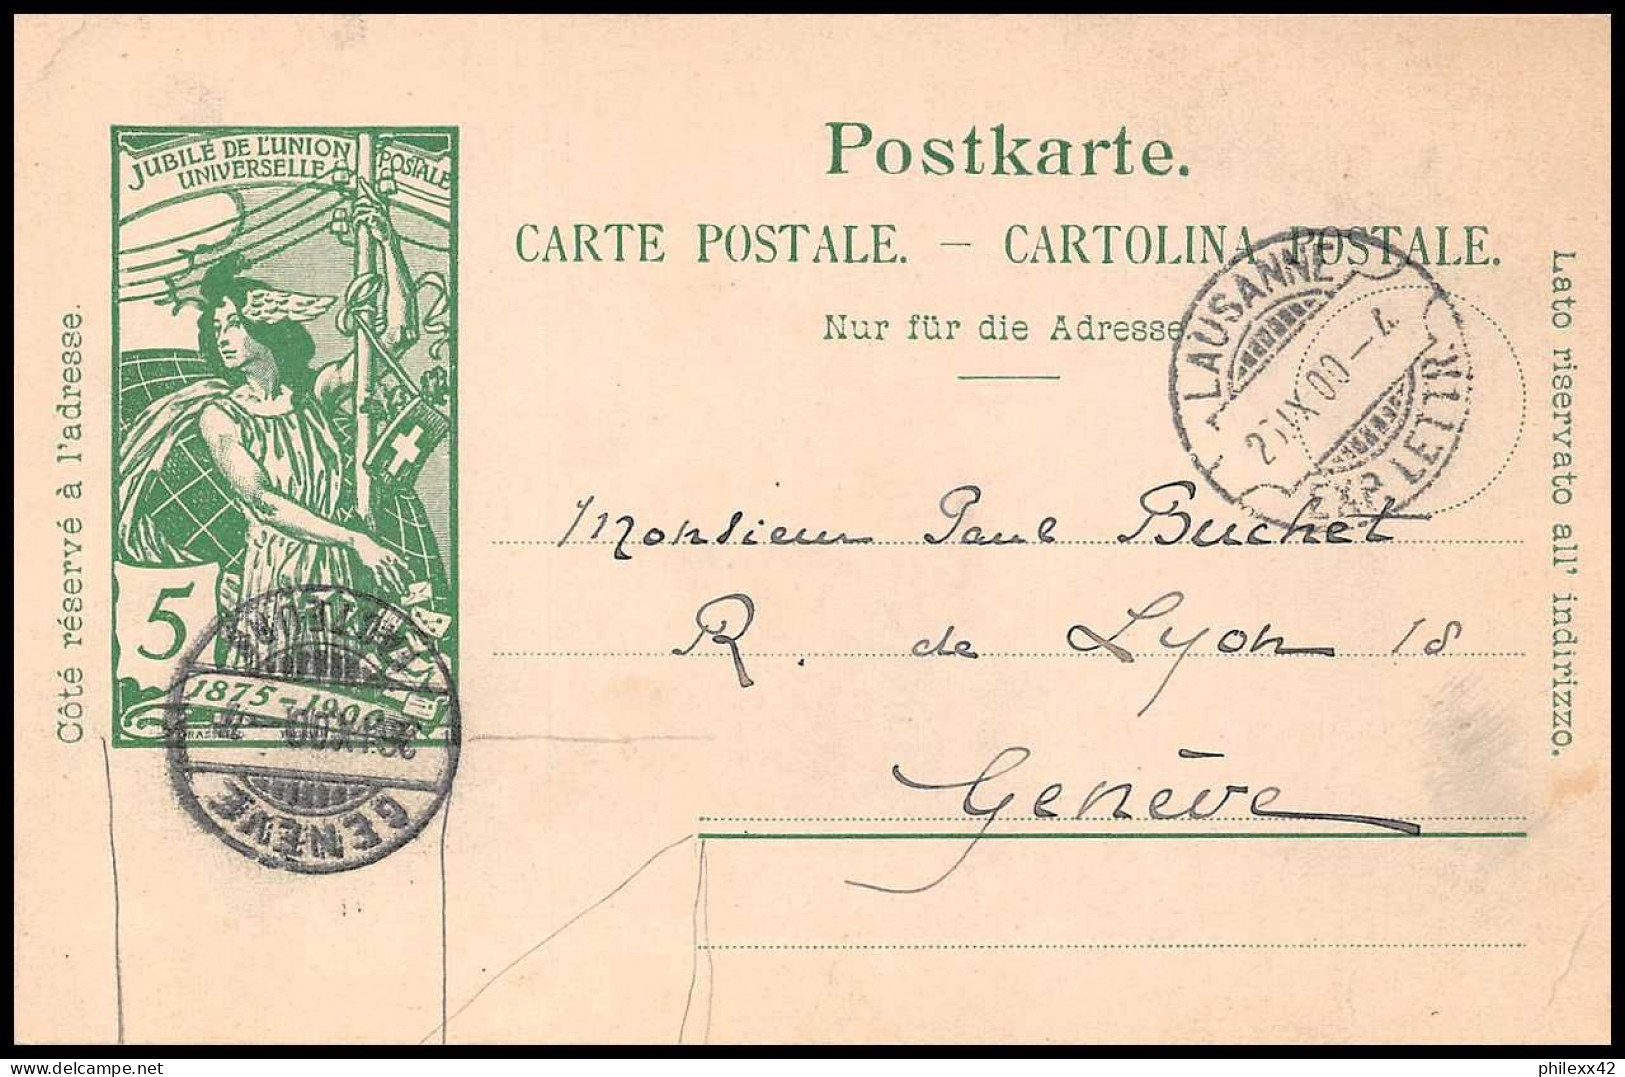 JUBILÉ DE L'UNION POSTALE
UNIVERSELLE
5
1875-1900
Postkarte.
CARTE POSTALE. — CARTOLINA POSTALE.
Nur für die Adresse
Côté réservé à l'adresse.
Lato riservato all' indirizzo.
LAUSANNE
IX 00-4.
EXP. LETTR.
Monsieur Paul Buchet
R. de Lyon 18
Genève
IX 00
GENÈVE
philexx42